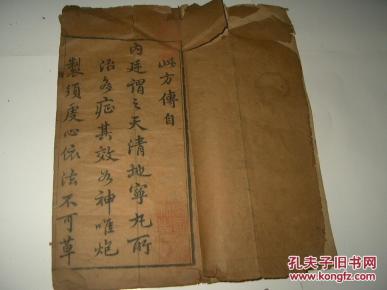 此方傳自
內廷謂之天清地寧丸所
治多症其效如神唯炮
製須虔心依法不可草
孔夫子旧书网